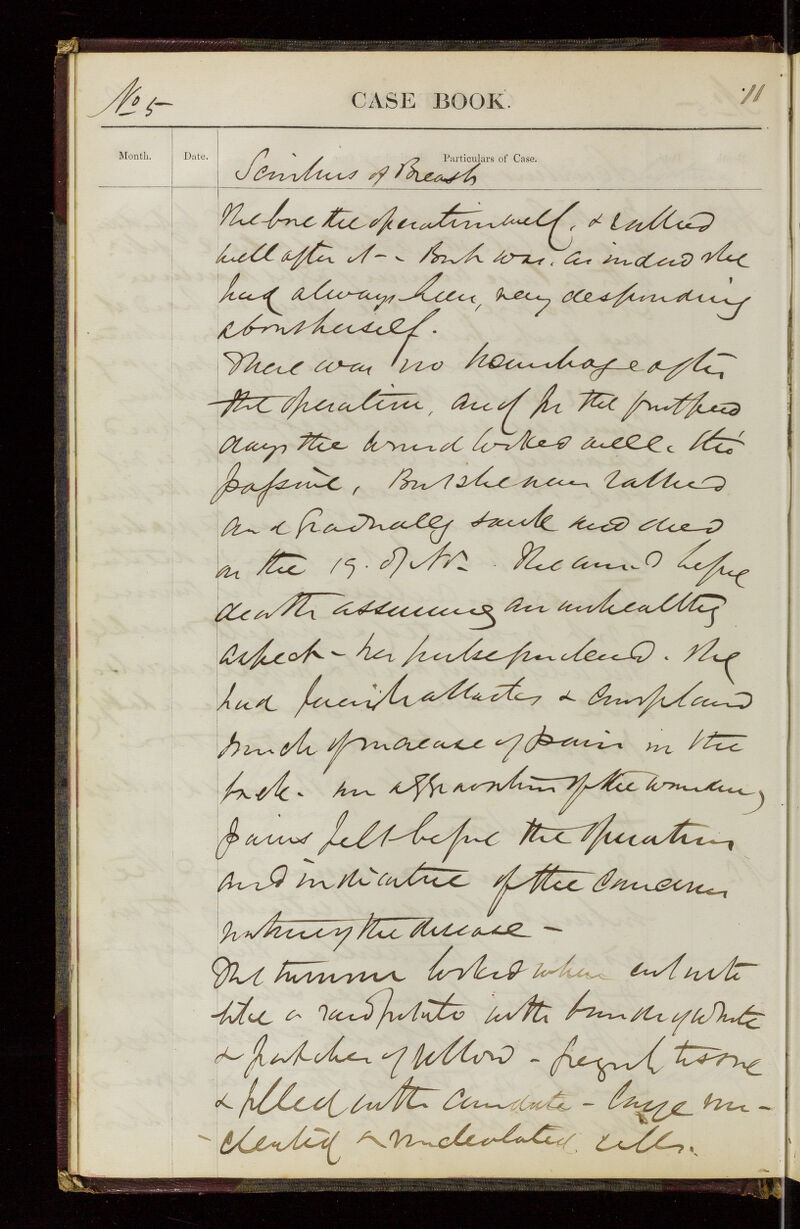 No 5
CASE BOOK.
11
Month.
Date.
Particulars of Case.
Scirrhus of Breast
She bore the operation well, & rallied
well after it - But was, as indeed she
had always been, very desponding
about herself.
There was no hemorhage after
the operation, and for the first few
days the wound looked well, tho'
passive, But she never rallied
and gradually sank and died
on the 19. of Nov. The wound before
death assuming an unhealthy
aspect - her pulse She
had attacks & complained
much of increase of pain in the
back. an aggravation of the wandering
pains felt before the operation
and indicative of the cancerous
nature of the disease -
The tumour looked when cut into
like a raw potato with bands of white
& patches of yellow - tissue
& filled with - large nu-
cleated & nucleolated cells.